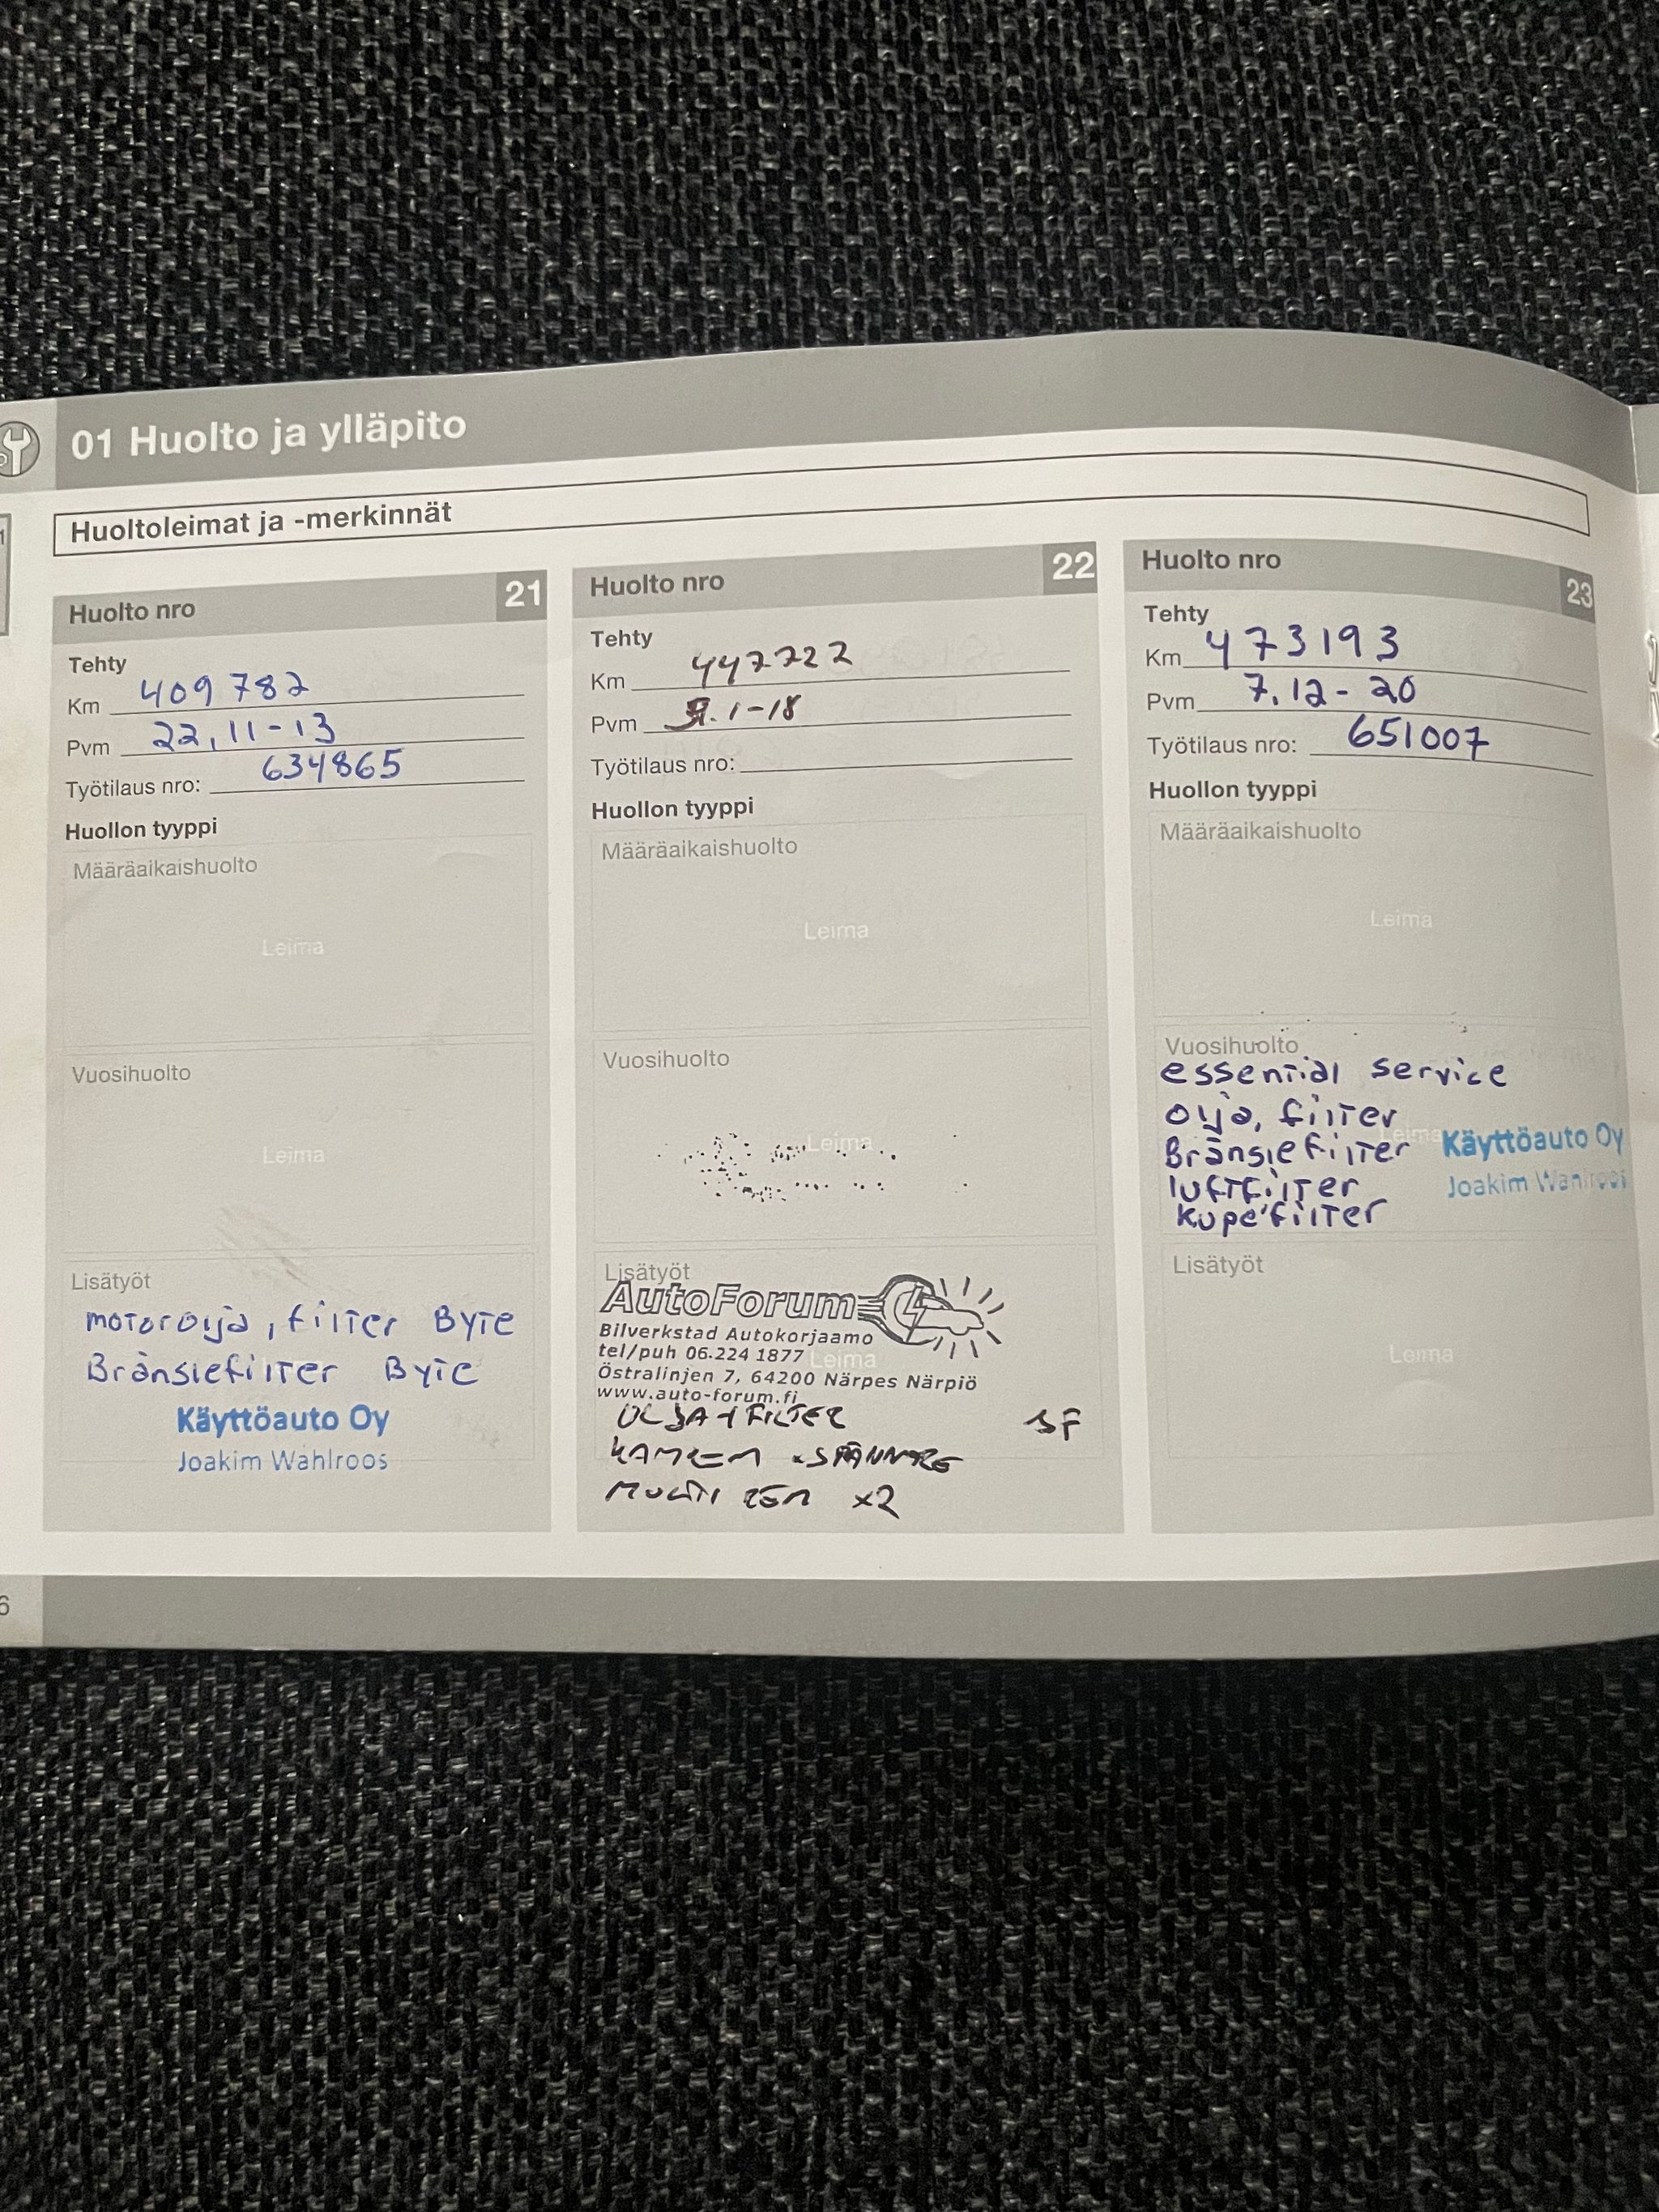 01 Huolto ja ylläpito
Huoltoleimat ja -merkinnät
Huolto nro 21
Tehty
Km 409 782
Pvm 22,11-13
Työtilaus nro: 634865
Huollon tyyppi
Määräaikaishuolto
Leima
Vuosihuolto
Leima
Lisätyöt
motorolja, filter Byte
Bränslefilter Byte
Käyttöauto Oy
Joakim Wahlroos
Huolto nro 22
Tehty
Km 447722
Pvm .1-18
Työtilaus nro:
Huollon tyyppi
Määräaikaishuolto
Leima
Vuosihuolto
Leima
Lisätyöt
AutoForum
Bilverkstad Autokorjaamo
tel/puh 06-224 1877
Leima
Östralinjen 7, 64200 Närpes Närpiö
www.auto-forum.fi
OLJA + FILTER SF
KAMREM + SPÄNNARE
MULTI REM x2
Huolto nro 23
Tehty
Km 473193
Pvm 7.12-20
Työtilaus nro: 651007
Huollon tyyppi
Määräaikaishuolto
Leima
Vuosihuolto
essential service
olja, filter
Bränslefilter Leima Käyttöauto Oy
luftfilter Joakim Wahlroos
kupe'filter
Lisätyöt
Leima
6